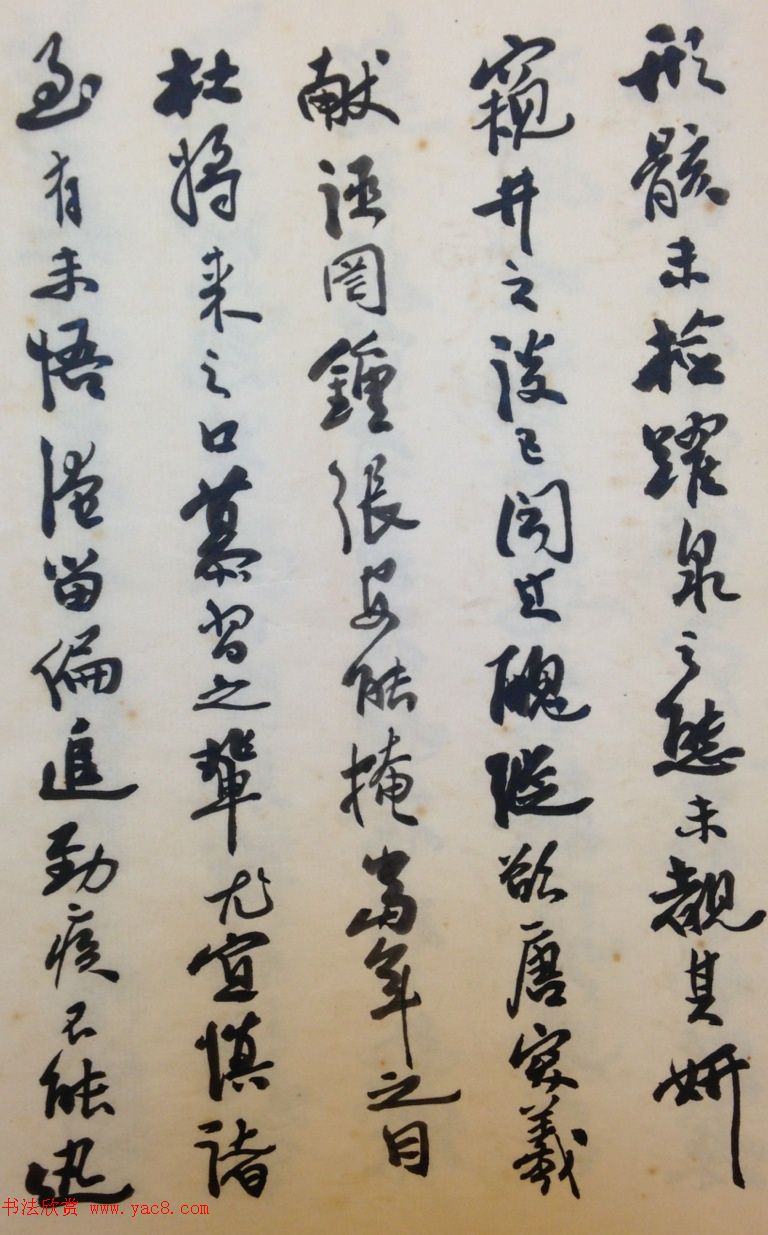 形骸未檢躍泉之態未覩其妍
窺井之談已聞其醜縱欲唐突羲
獻誣罔鍾張安能掩當年之目
杜將來之口慕習之輩尤宜慎諸
至有未悟淹留偏追勁疾不能迅
书法欣赏 www.yac8.com